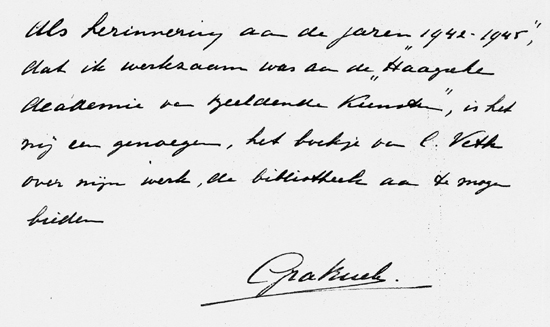 Als herinnering aan de jaren "1942-1945",
dat ik werkzaam was aan de "Haagsche
Academie van Beeldende Kunsten", is het
mij een genoegen, het boekje van C. Veth
over mijn werk, de bibliotheek aan te mogen
bieden